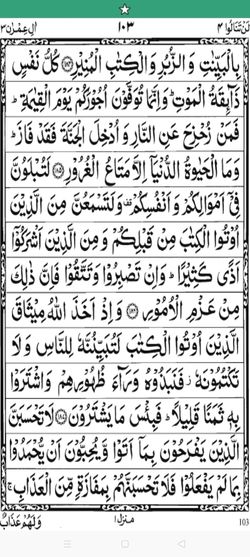 لَنْ تَنَالُوا ۴ ۱۰۳ اٰلِ عِمْرٰن ۳
بِالْبَيِّنٰتِ وَ الزُّبُرِ وَ الْكِتٰبِ الْمُنِيْرِ ﴿۱۸۴﴾ كُلُّ نَفْسٍ
ذَآئِقَةُ الْمَوْتِ ؕ وَ اِنَّمَا تُوَفَّوْنَ اُجُوْرَكُمْ يَوْمَ الْقِيٰمَةِ ؕ
فَمَنْ زُحْزِحَ عَنِ النَّارِ وَ اُدْخِلَ الْجَنَّةَ فَقَدْ فَازَ ؕ
وَ مَا الْحَيٰوةُ الدُّنْيَاۤ اِلَّا مَتَاعُ الْغُرُوْرِ ﴿۱۸۵﴾ لَتُبْلَوُنَّ
فِيْۤ اَمْوَالِكُمْ وَ اَنْفُسِكُمْ ۟ وَ لَتَسْمَعُنَّ مِنَ الَّذِيْنَ
اُوْتُوا الْكِتٰبَ مِنْ قَبْلِكُمْ وَ مِنَ الَّذِيْنَ اَشْرَكُوْۤا
اَذًى كَثِيْرًا ؕ وَ اِنْ تَصْبِرُوْا وَ تَتَّقُوْا فَاِنَّ ذٰلِكَ
مِنْ عَزْمِ الْاُمُوْرِ ﴿۱۸۶﴾ وَ اِذْ اَخَذَ اللّٰهُ مِيْثَاقَ
الَّذِيْنَ اُوْتُوا الْكِتٰبَ لَتُبَيِّنُنَّهٗ لِلنَّاسِ وَ لَا
تَكْتُمُوْنَهٗ ۫ فَنَبَذُوْهُ وَرَآءَ ظُهُوْرِهِمْ وَ اشْتَرَوْا
بِهٖ ثَمَنًا قَلِيْلًا ؕ فَبِئْسَ مَا يَشْتَرُوْنَ ﴿۱۸۷﴾ لَا تَحْسَبَنَّ
الَّذِيْنَ يَفْرَحُوْنَ بِمَاۤ اَتَوْا وَّ يُحِبُّوْنَ اَنْ يُّحْمَدُوْا
بِمَا لَمْ يَفْعَلُوْا فَلَا تَحْسَبَنَّهُمْ بِمَفَازَةٍ مِّنَ الْعَذَابِ ۚ
وَ لَهُمْ عَذَابٌ منزل ۱ 103